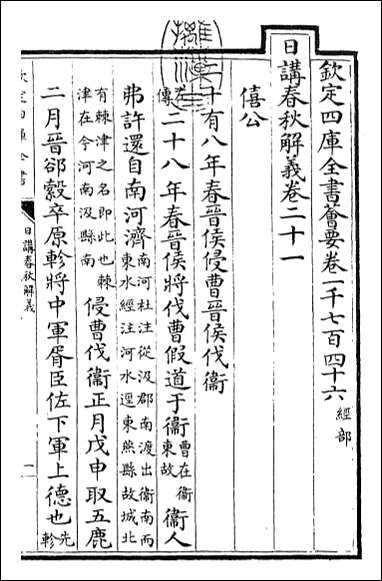 欽定四庫全書薈要卷一千七百四十六 經部
日講春秋解義卷二十一
僖公
十有八年春晉侯侵曹晉侯伐衛
傳二十八年春晉侯將伐曹假道于衛曹在衛東故衛人
弗許還自南河濟南河杜注從汲郡南渡出衛南而東水經注河水逕東燕縣故城北
有棘津之名即此也棘津在今河南汲縣南侵曹伐衛正月戊申取五鹿
二月晉郤縠卒原軫將中軍胥臣佐下軍上德也先軫
欽定四庫全書
日講春秋解義
一